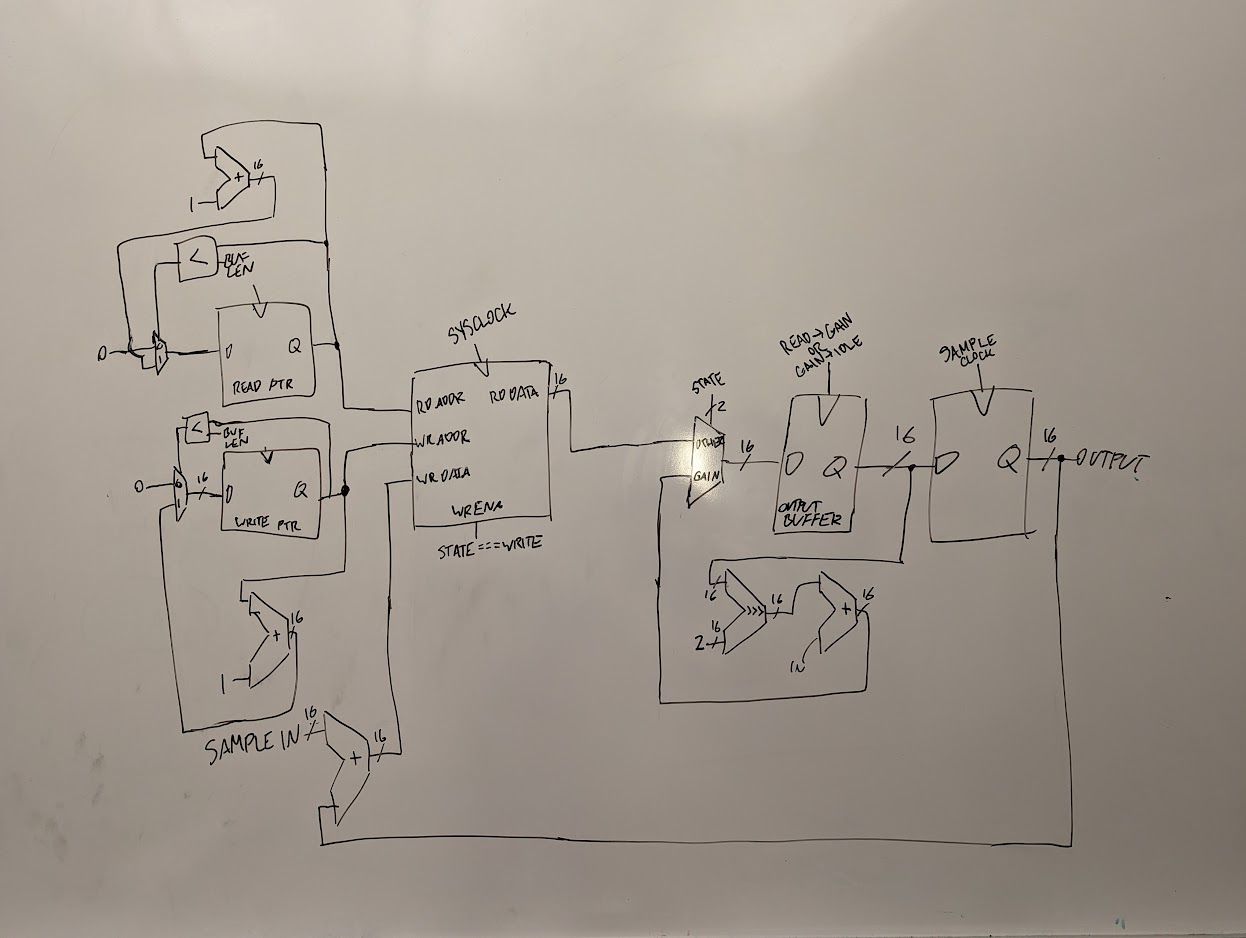 16
+
1
<
BUF
LEN
0
0
1
D
Q
READ PTR
<
BUF
LEN
0
0
1
16
D
Q
WRITE PTR
16
+
1
SAMPLE IN
16
+
16
SYSCLOCK
RD ADDR
RD DATA
16
WR ADDR
WR DATA
WRENA
STATE===WRITE
STATE
2
OTHER
GAIN
16
READ→GAIN
OR
GAIN→IDLE
D
Q
OUTPUT
BUFFER
16
SAMPLE
CLOCK
D
Q
16
OUTPUT
16
>>>
16
2
16
+
16
IN